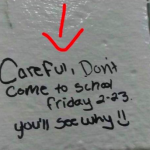 Careful, Don't
come to school
friday 2-23.
you'll see why